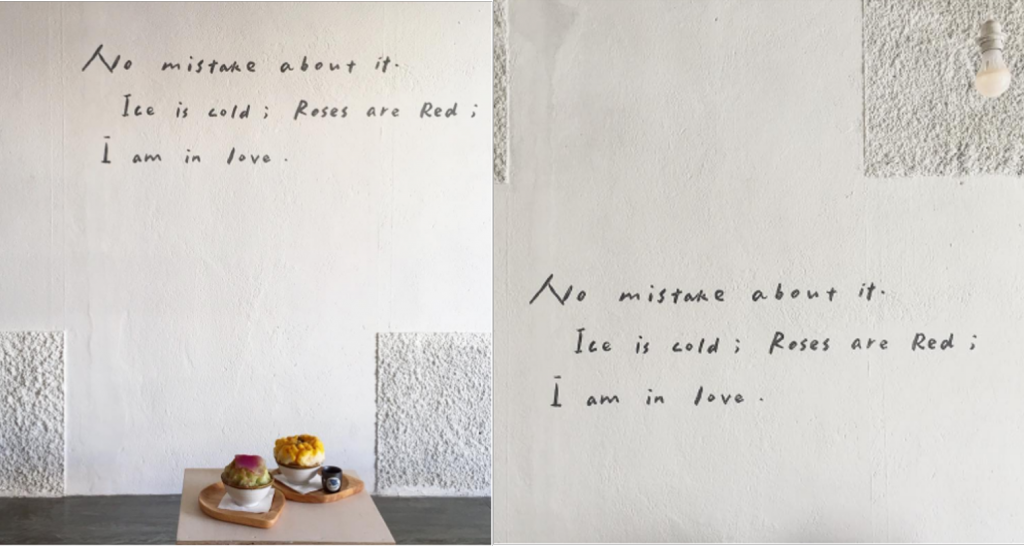 No mistake about it.
Ice is cold ; Roses are Red ;
I am in love .
No mistake about it.
Ice is cold ; Roses are Red ;
I am in love .